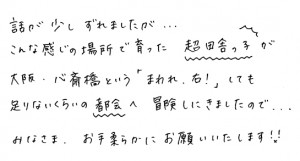 話が少しずれましたが...
こんな感じの場所で育った 超田舎っ子が
大阪・心斎橋という「まわれ、右!」しても
足りないくらいの都会へ 冒険しにきましたので...
みなさま、お手柔らかにお願いいたします!!